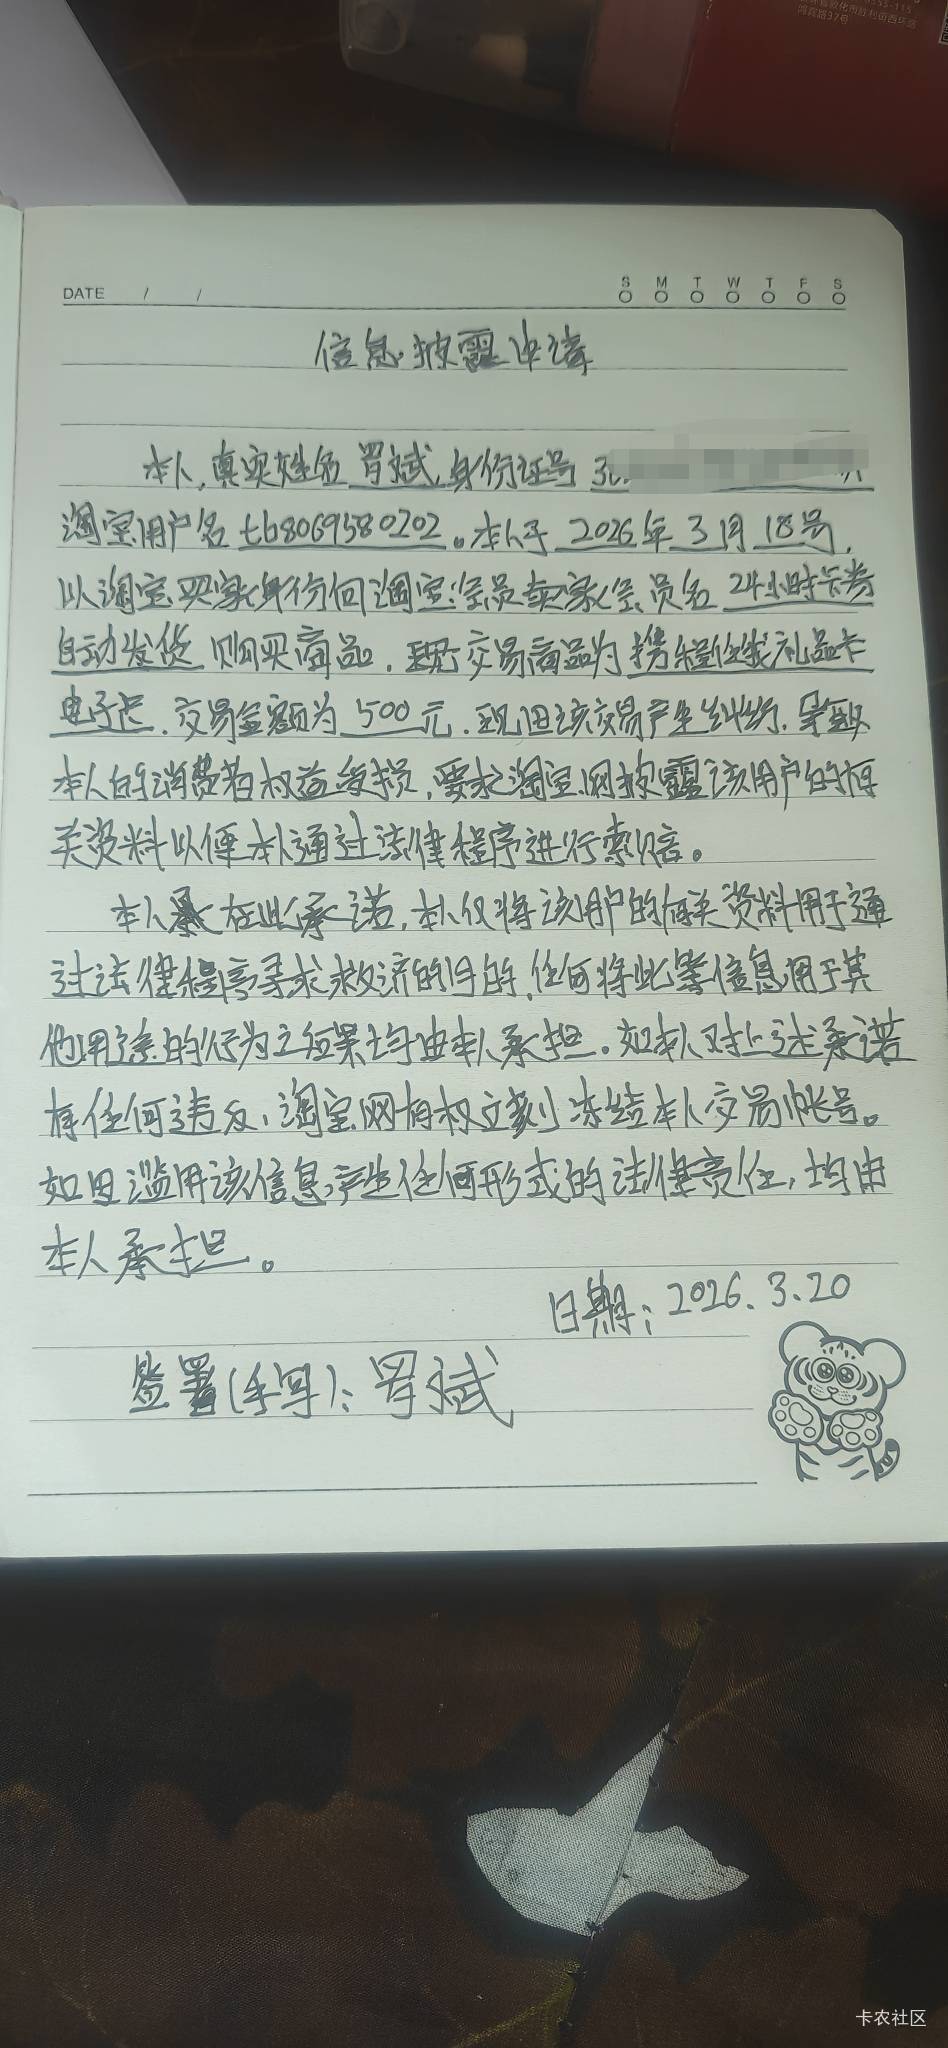 鸿宾路37号
DATE / /
S M T W T F S
信息披露申请
本人,真实姓名 胥斌,身份证号 3
淘宝用户名 tb8069580202。本人于 2026年 3月 18号,
以淘宝买家身份向淘宝会员卖家(会员名 24小时卡券
自动发货 购买商品,现交易商品为 携程任我礼品卡
电子卡,交易金额为 500元,现因该交易产生纠纷,导致
本人的消费者权益受损,要求淘宝网披露该用户的有
关资料以便本人通过法律程序进行索赔。
本人在此承诺,本人仅将该用户的有关资料用于通
过法律程序寻求救济的目的,任何将此等信息用于其
他用途的行为之征果均由本人承担。如本人对上述承诺
有任何违反,淘宝网有权立刻冻结本人交易帐号。
如因滥用该信息,产生任何形式的法律责任,均由
本人承担。
日期:2026.3.20
签署(手写):胥斌
卡农社区